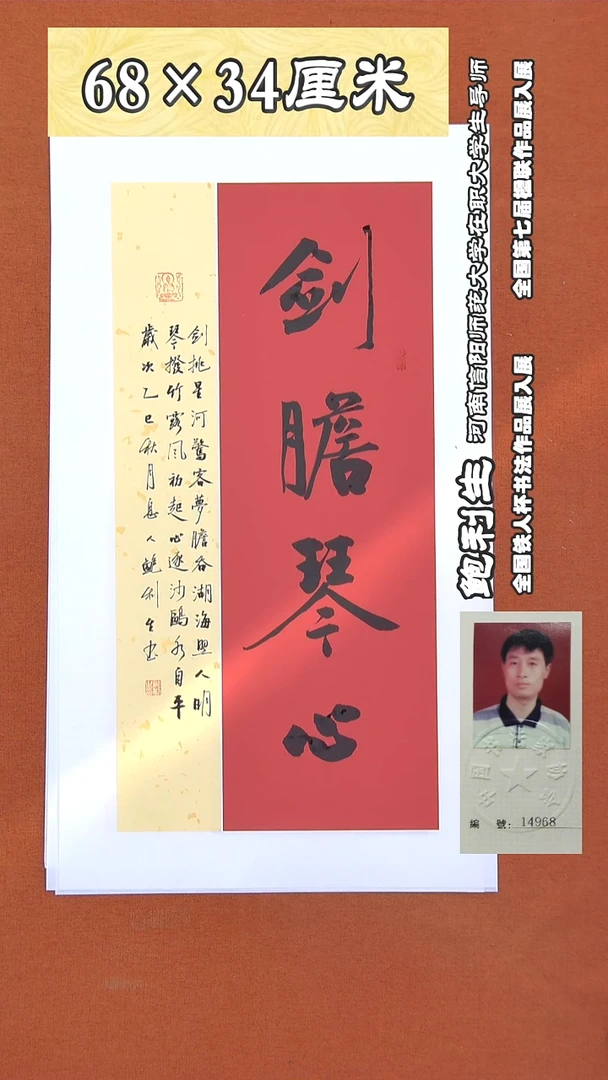 68×34厘米
剑膽琴心
剑挑星河驚客夢膽吞湖海照人明
琴撥竹露风初起心逐沙鷗水自平
歲次乙巳秋月息人鲍利生书
鲍利生 河南信阳师范大学在职大学生导师
全国铁人杯书法作品展入展 全国第七届楹联作品展入展
編 號: 14968